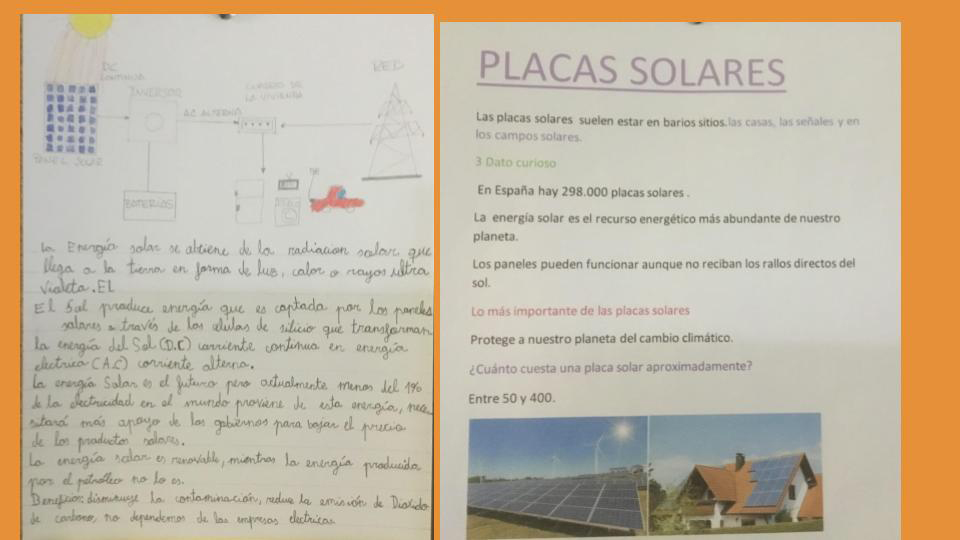 DC
CONTINUA
INVERSOR
AC ALTERNA
CUADRO DE
LA VIVIENDA
RED
PANEL SOLAR
BATERIAS
La Energía solar se obtiene de la radiacion solar que
llega a la tierra en forma de luz, calor o rayos ultra
violeta. EL
El Sol produce energía que es captada por los paneles
solares a través de las células de silicio que transforman
la energía del Sol (D.C) corriente continua en energía
electrica (A.C) corriente alterna.
La energía Solar es el futuro pero actualmente menos del 1%
de la electricidad en el mundo proviene de esta energía, nece
sitará más apoyo de los gobiernos para bajar el precio
de los productos solares.
La energía solar es renovable, mientras la energía producida
por el petróleo no lo es.
Beneficios: disminuye la contaminación, reduce la emisión de Dioxido
de carbono, no dependemos de las empresas electricas.
PLACAS SOLARES
Las placas solares suelen estar en barios sitios.las casas, las señales y en
los campos solares.
3 Dato curioso
En España hay 298.000 placas solares .
La energía solar es el recurso energético más abundante de nuestro
planeta.
Los paneles pueden funcionar aunque no reciban los rallos directos del
sol.
Lo más importante de las placas solares
Protege a nuestro planeta del cambio climático.
¿Cuánto cuesta una placa solar aproximadamente?
Entre 50 y 400.